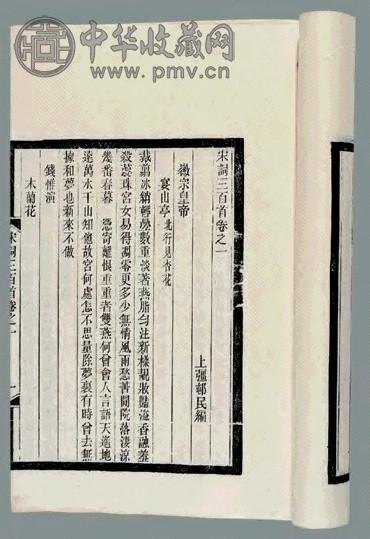 中华收藏网
www.pmv.cn
宋詞三百首卷之一
上彊邨民編
徽宗皇帝
宴山亭 北行見杏花
裁翦冰綃輕疊數重淡著燕脂勻注新樣靚妝豔溢香融羞
殺蕊珠宮女易得凋零更多少無情風雨愁苦閒院落淒涼
幾番春暮 憑寄離恨重重者雙燕何曾會人言語天遙地
遠萬水千山知他故宮何處怎不思量除夢裏有時曾去無
據和夢也新來不做
錢惟演
木蘭花
宋詞三百首卷之一
一